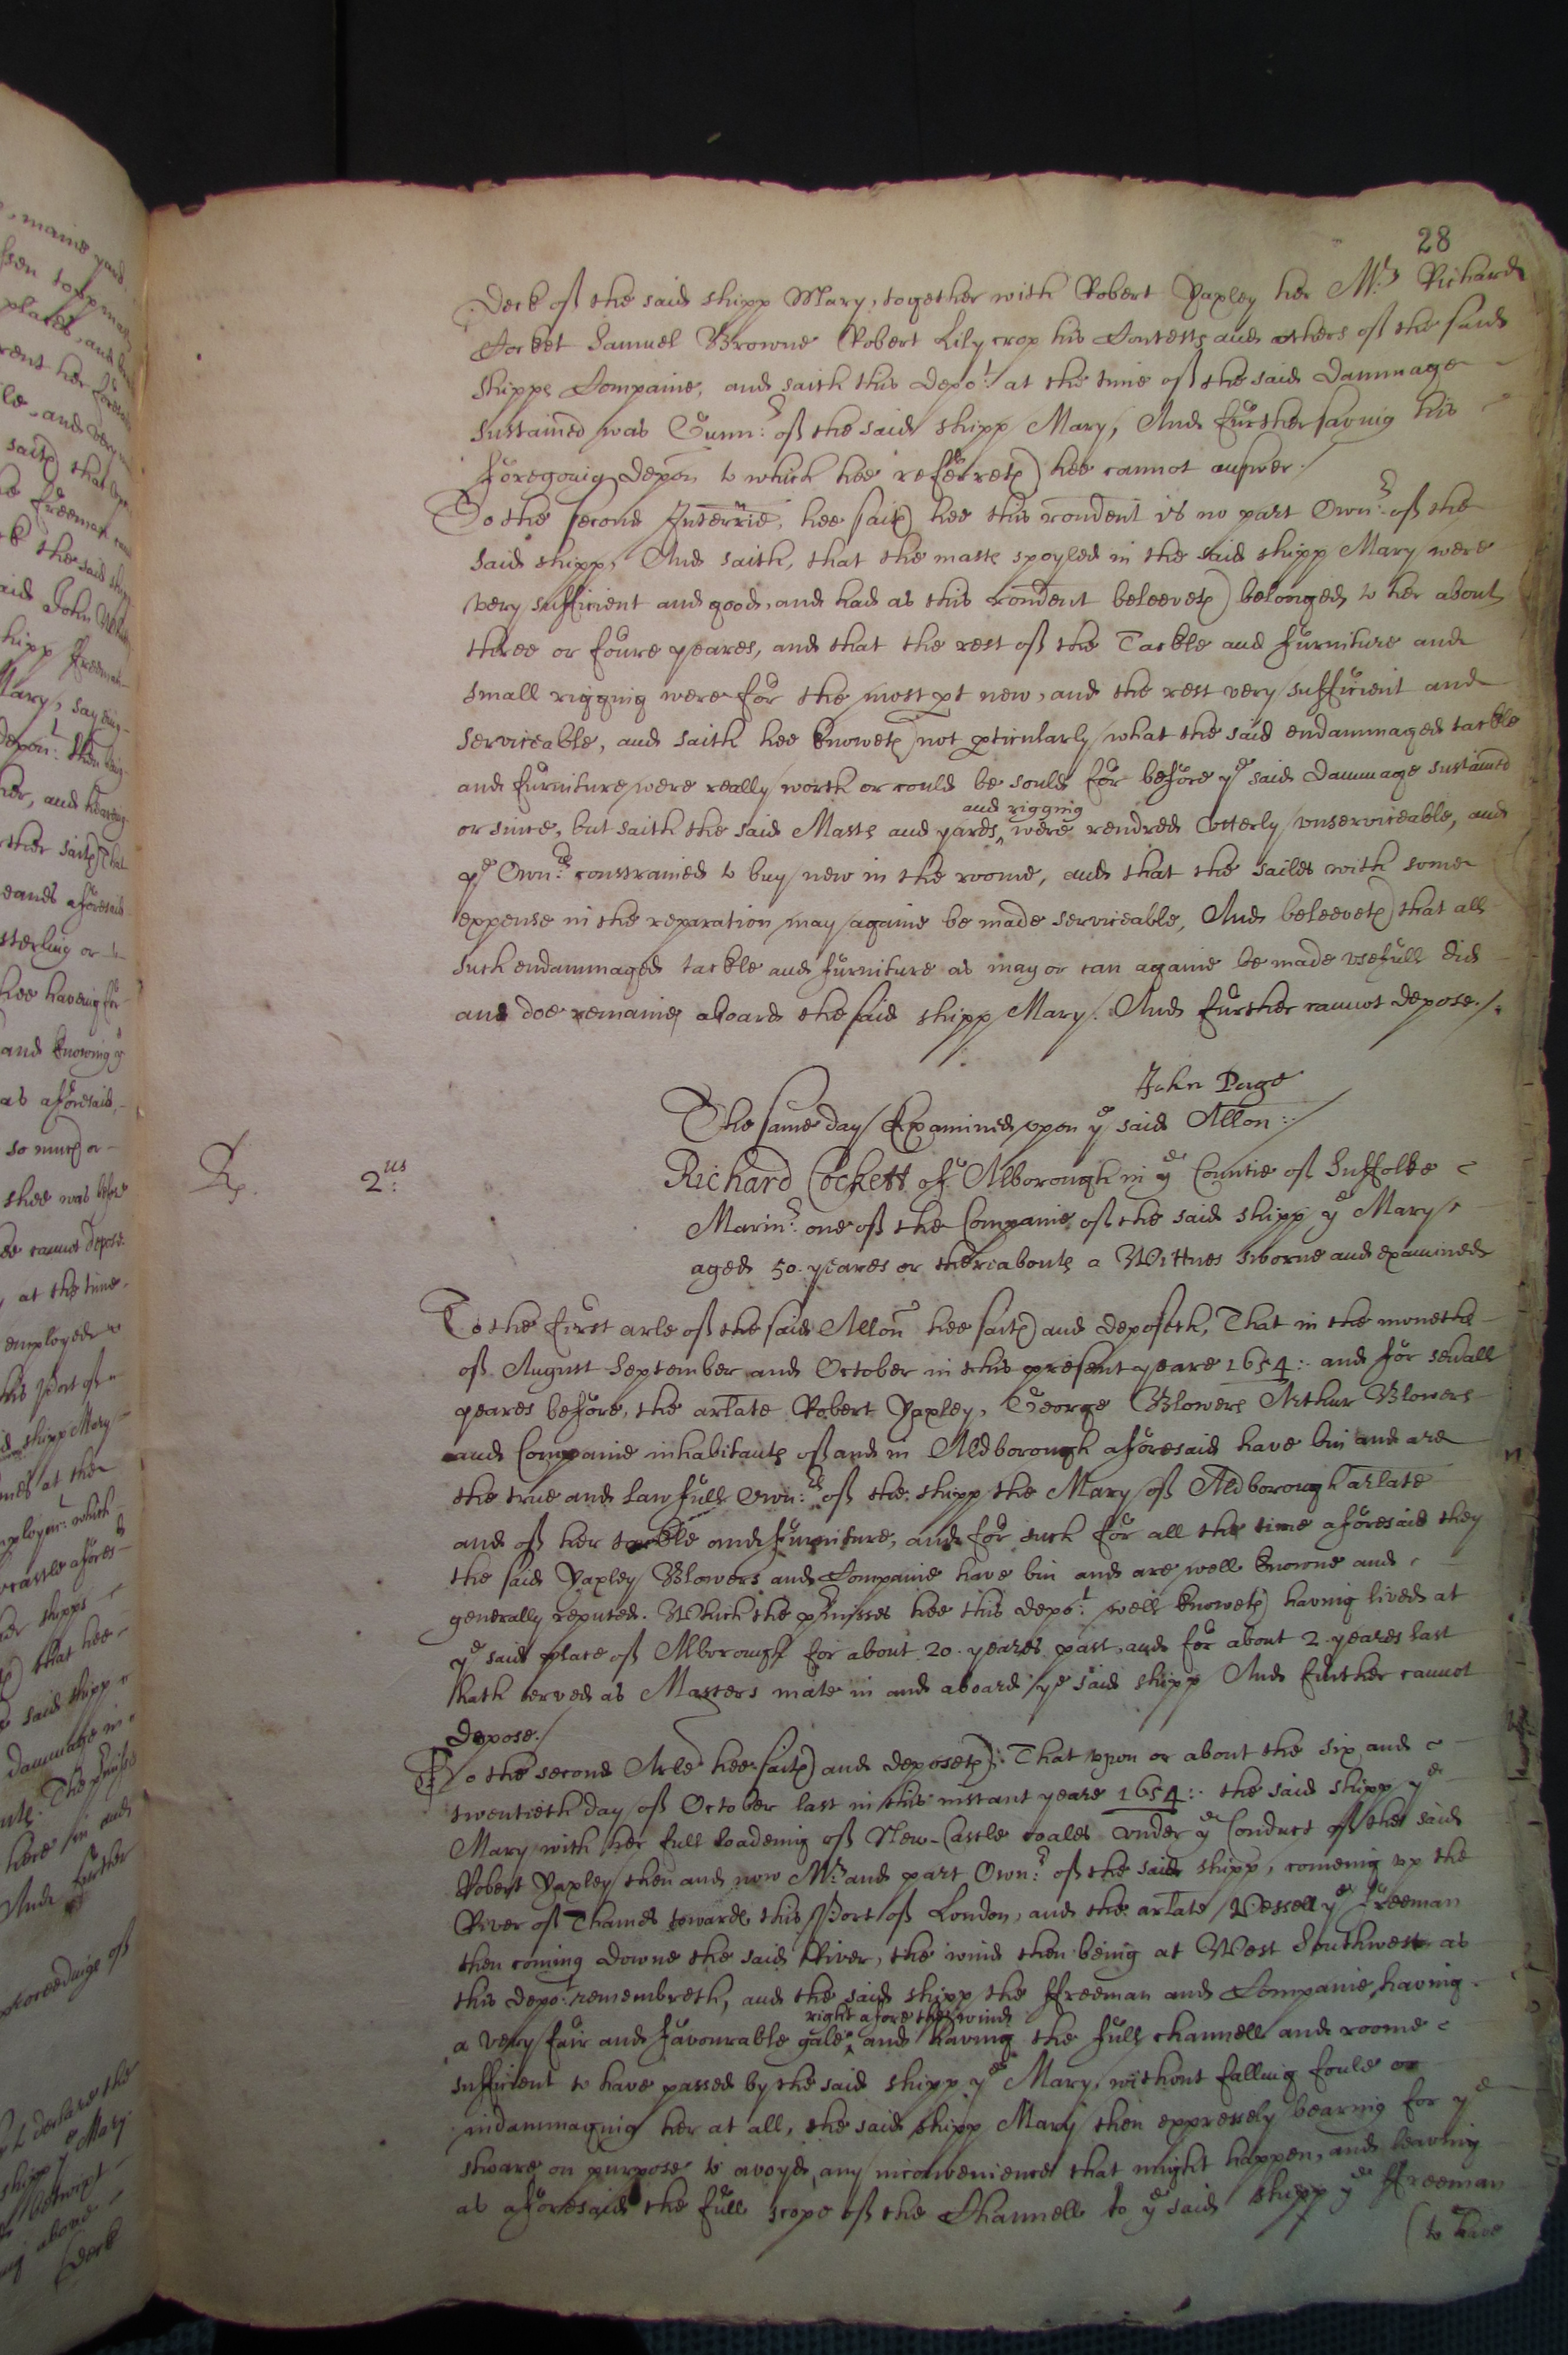 28
Deck of the said shipp Mary, together with Robert Yaxley her Mr. Richard
Cocket Samuel Browne Robert Lilycrop his Contests and others of the said
shipps Companie, and saith this depot: at the time of the said dammage
sustained was Gunnr: of the said shipp Mary, And further saving his
foregoing depon to which hee referreth hee cannot answer./
To the second Interrie, hee saith hee this rondent is no part Ownr: of the
said shipp, And saith, that the masts spoyled in the said shipp Mary were
very sufficient and good, and had as this rondent beleeveth belonged to her about
three or foure yeares, and that the rest of the Tackle and furniture and
small rigging were for the most pt new, and the rest very sufficient and
serviceable, and saith hee knoweth not pticularly what the said endammaged tackle
and furniture were really worth or could be sould for before ye said dammage sustained
and rigging
or since, but saith the said Masts and yards ^ were rendred utterly unserviceable, and
ye Ownrs: constrained to buy new in the roome, and that the sailes with some
expense in the reparation may againe be made serviceable, And beleeveth that all
such endammaged tackle and furniture as may or can againe be made usefull did
and doe remaine aboard the said shipp Mary. And further cannot depose./.
John Page
The same day Examined upon ye said Allon:/
Rp. 2us:
Richard Cockett of Alborough in ye Countie of Suffolke
Marinr: one of the Companie of the said shipp ye Mary
aged 50. yeares or thereabouts a Wittnes sworne and examined
To the first arle of the said Allon hee saith and deposeth, That in the moneths
of August September and October in this present yeare 1654:. and for severall
yeares before, the arlate Robert Yaxley, George Blowers Arthur Blowers
and Companie inhabitants of and in Aldborough aforesaid have bin and are
the true and lawfull Ownrs: of the shipp the Mary of Aldborough arlate
and of her tackle and furniture, and for such for all the time aforesaid they
the said Yaxley Blowers and Companie have bin and are well knowne and
generally reputed. Which the pmisses hee this depot: well knoweth having lived at
ye said place of Alborough for about 20. yeares past, and for about 2. yeares last
hath served as Masters mate in and aboard ye said shipp And further cannot
depose./
To the second Arle hee saith and deposeth:. That upon or about the six and
twentieth day of October last in this instant yeare 1654:. the said shipp ye
Mary with her full loadeing of New-Castle coales under ye Conduct of the said
Robert Yaxley then and now Mr. and part Ownr: of the said shipp, comeing up the
River of Thames towards this Port of London, and the arlate Vessell ye Freeman
then coming downe the said River, the wind then being at West Southwest as
this depot: remembreth, and the said shipp the ffreeman and Companie, having
right afore the wind
a very fair and favourable gale ^ and having the full channell and roome
sufficient to have passed by the said shipp ye Mary, without falling foule or
indammaging her at all, the said shipp Mary then expressely bearing for ye
shoare on purpose to avoyde any inconvenience that might happen, and leaving
as aforesaid the full scope of the Channell to ye said shipp ye ffreeman
(to have